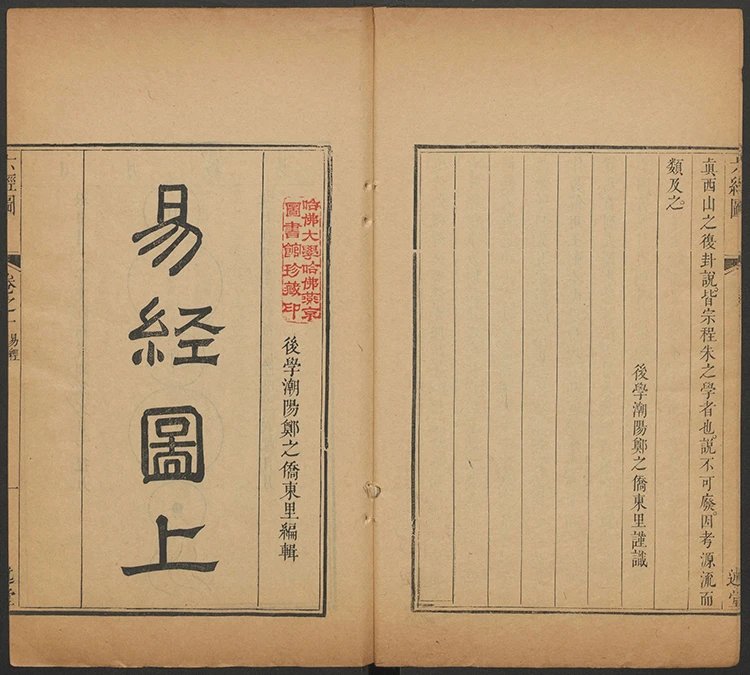 六經圖
眞西山之復卦說。皆宗程朱之學者也。說不可廢。因考源流而
類及之。
後學潮陽鄭之僑東里謹識
述堂
哈佛大學哈佛燕京
圖書館珍藏印
後學潮陽鄭之僑東里編輯
易經圖上
六經圖
卷之一
易經
一
述堂